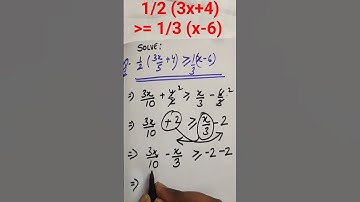 1/2 (3x+4)
>= 1/3 (x-6)
SOLVE:
1/2 (3x/5 + 4) ≥ 1/3 (x-6)
⇒ 3x/10 + 4/2 2 ≥ x/3 - 6/3 2
⇒ 3x/10 + 2 ≥ x/3 - 2
⇒ 3x/10 - x/3 ≥ -2 -2
⇒